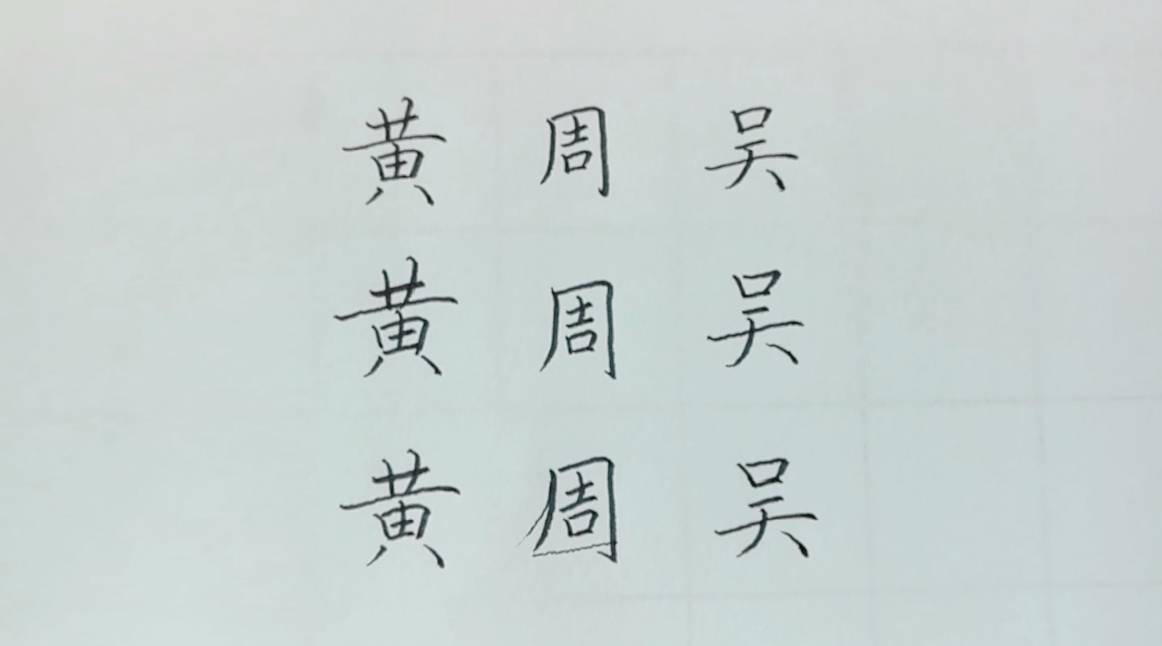 黄 周 吴
黄 周 吴
黄 周 吴